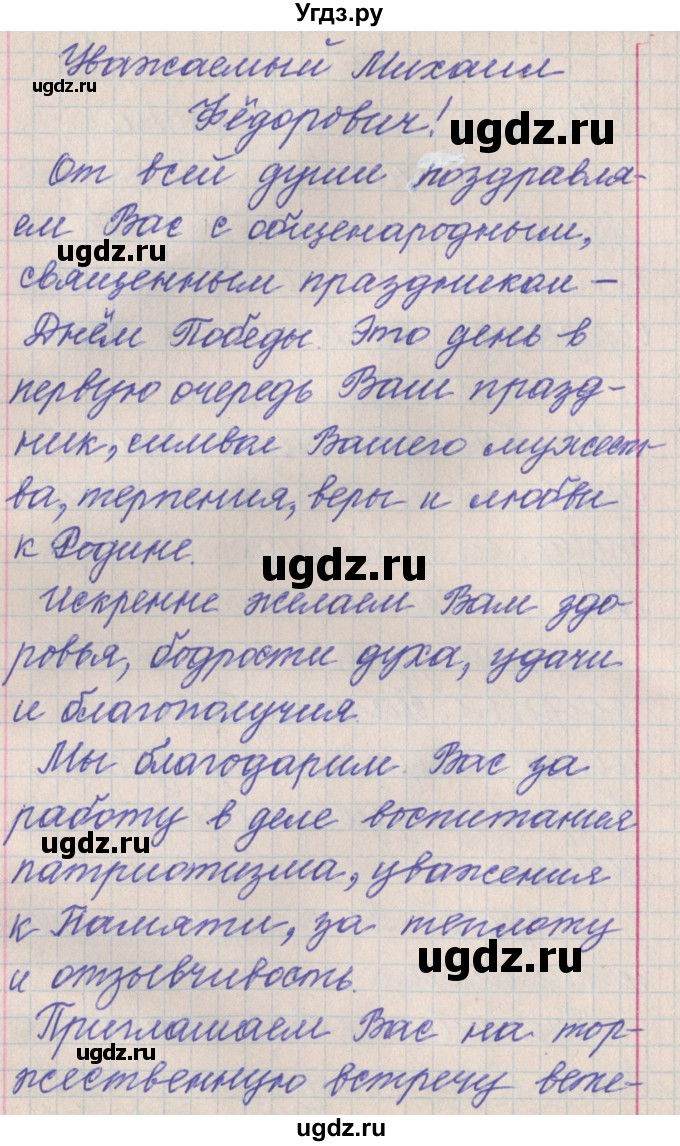 Угдз.ру
Уважаемый Михаил
Фёдорович!
От всей души поздравля-
ем Вас с общенародным,
священным праздником –
Днём Победы. Это день в
первую очередь Ваш празд-
ник, символ Вашего мужест-
ва, терпения, веры и любви
к Родине.
Искренне желаем Вам здо-
ровья, бодрости духа, удачи
и благополучия.
Мы благодарим Вас за
работу в деле воспитания
патриотизма, уважения
к Памяти, за теплоту
и отзывчивость.
Приглашаем Вас на тор-
жественную встречу вете-
ugdz.ru
ugdz.ru
ugdz.ru
ugdz.ru
ugdz.ru
ugdz.ru
ugdz.ru
ugdz.ru
ugdz.ru
ugdz.ru